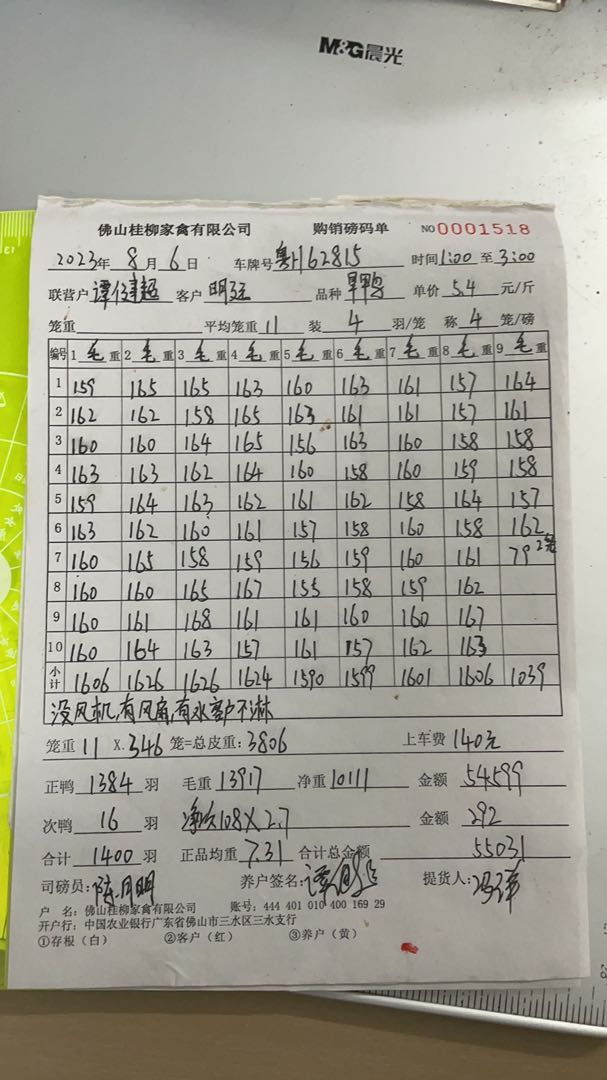 M&G晨光
佛山桂柳家禽有限公司 购销磅码单 NO 0001518
2023年 8月 6日 车牌号 粤H62815 时间 1:00 至 3:00
联营户 谭 超 客户 明 品种 鸭 单价 5.4 元/斤
笼重 平均笼重 11 装 4 羽/笼 称 4 笼/磅
编号 1 毛重 2 毛重 3 毛重 4 毛重 5 毛重 6 毛重 7 毛重 8 毛重 9 毛重
1 159 165 165 163 160 163 161 157 164
2 162 162 158 165 163 161 161 157 161
3 160 160 164 165 156 163 160 158 158
4 163 163 162 164 160 158 160 159 158
5 159 164 163 162 161 162 158 164 157
6 163 162 160 161 157 158 160 158 162
7 160 165 158 159 156 159 160 161 79 2笼
8 160 160 165 167 155 158 159 162
9 160 161 168 161 161 160 160 167
10 160 164 163 157 161 157 162 163
小计 1606 1626 1626 1624 1590 1599 1601 1606 1039
没风机,有风扇,有水客户不淋
笼重 11 X 346 笼=总皮重: 3806 上车费 140元
正鸭 1384 羽 毛重 13917 净重 10111 金额 54599
次鸭 16 羽 净重108X2.7 金额 292
合计 1400 羽 正品均重 7.31 合计总金额 55031
司磅员: 陈月明 养户签名: 谭 提货人: 冯
户 名: 佛山桂柳家禽有限公司 账号: 444 401 010 400 169 29
开户行: 中国农业银行广东省佛山市三水区三水支行
①存根（白） ②客户（红） ③养户（黄）